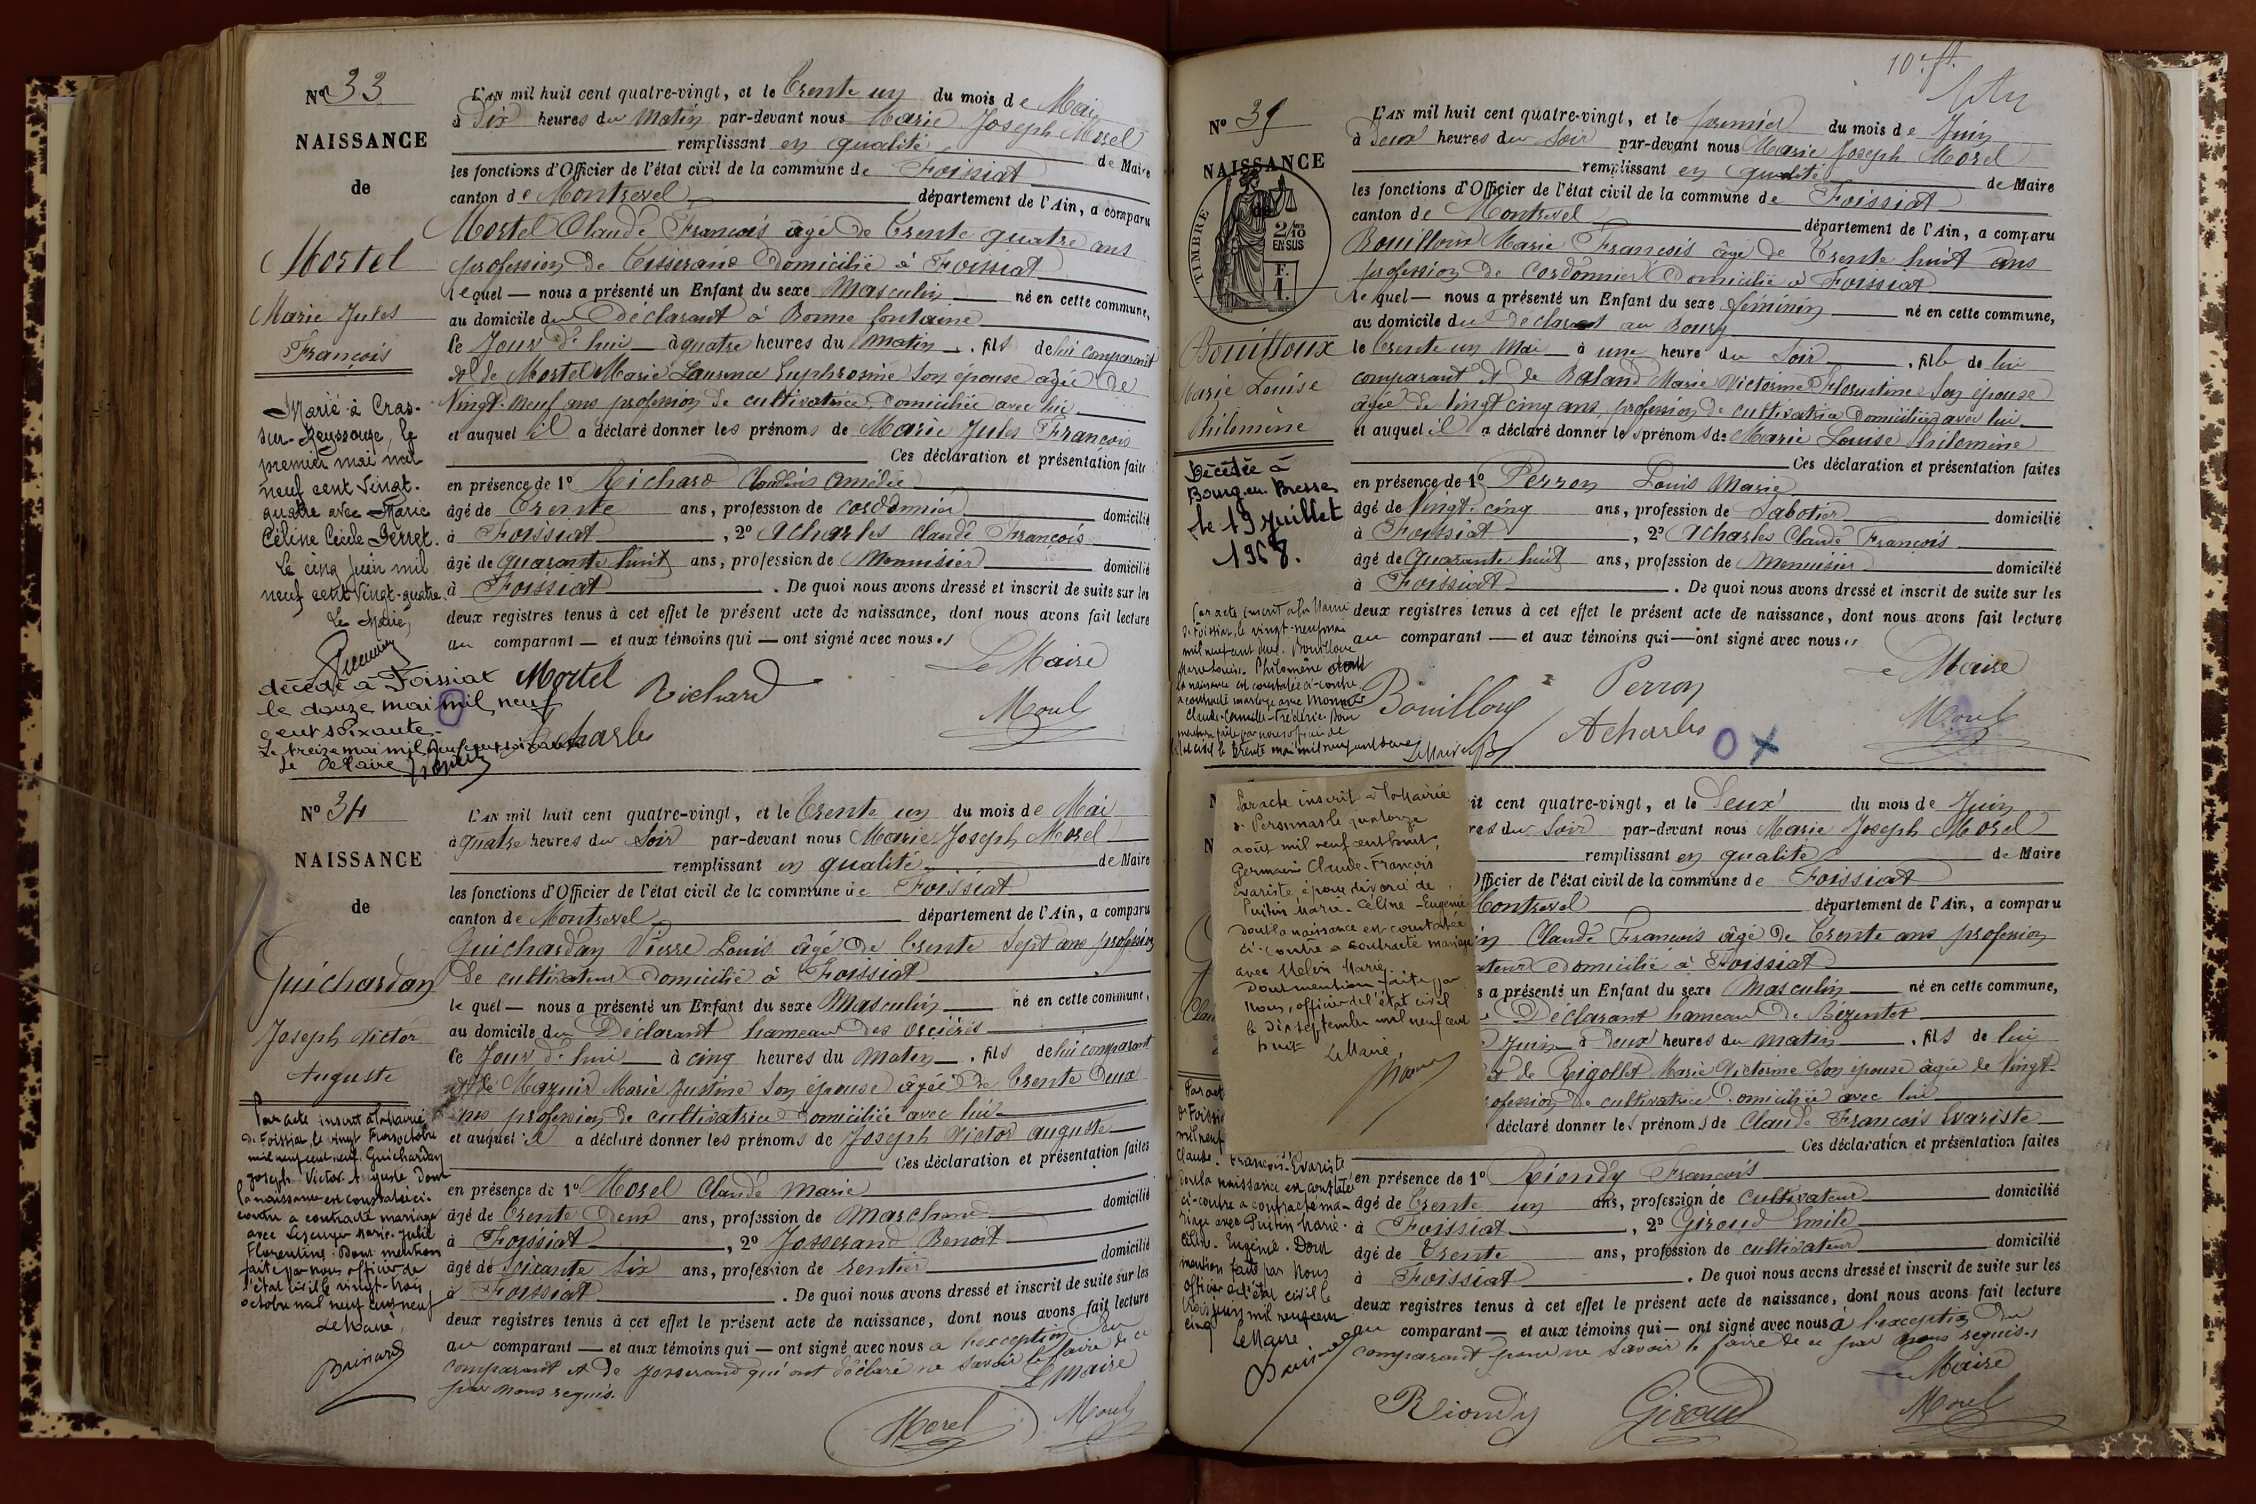 Nº 33
NAISSANCE
de
Mortel
Marie Jules
François
Marié à Cras-
sur-Reyssouze, le
premier mai mil
neuf cent vingt-
quatre avec Marie
Céline Cécile Perret.
Le cinq juin mil
neuf cent vingt-quatre
Le Maire,
décédé à Foissiat
le douze mai mil neuf
cent soixante.
Le treize mai mil neuf cent soixante
Le Maire
L'AN mil huit cent quatre-vingt, et le trente un du mois de Mai
à Six heures du Matin par-devant nous Marie Joseph Morel
remplissant en qualité de Maire
les fonctions d'Officier de l'état civil de la commune de Foissiat
canton de Montrevel département de l'Ain, a comparu
Mortel Claude François âgé de trente quatre ans
profession de Tisserand domicilié à Foissiat
lequel — nous a présenté un Enfant du sexe Masculin né en cette commune,
au domicile du déclarant à Bonne fontaine
le Jour d'hui à quatre heures du matin, fils de lui comparant
et de Mortel Marie Laurence Euphrosine son épouse âgée de
Vingt-neuf ans profession de cultivatrice domiciliée avec lui
et auquel il a déclaré donner les prénoms de Marie Jules François
Ces déclaration et présentation faites
en présence de 1º Richard Claudius Amédée
âgé de trente ans, profession de cordonnier domicilié
à Foissiat, 2º Acharles Claude François
âgé de quarante huit ans, profession de Menuisier domicilié
à Foissiat. De quoi nous avons dressé et inscrit de suite sur les
deux registres tenus à cet effet le présent acte de naissance, dont nous avons fait lecture
au comparant — et aux témoins qui — ont signé avec nous.
Le Maire
Mortel Richard
Morel
Acharles
Nº 34
NAISSANCE
de
Guichardan
Joseph Victor
Auguste
Par acte inscrit à la Mairie
de Foissiat, le vingt trois octobre
mil neuf cent neuf, Guichardan
Joseph Victor Auguste dont
la naissance est constatée ci-
contre a contracté mariage
avec Marie-Julie
Florentine. Dont mention
faite par nous officier de
l'état civil le vingt-trois
octobre mil neuf cent neuf
Le Maire,
L'AN mil huit cent quatre-vingt, et le trente un du mois de Mai
à quatre heures du Soir par-devant nous Marie Joseph Morel
remplissant en qualité de Maire
les fonctions d'Officier de l'état civil de la commune de Foissiat
canton de Montrevel département de l'Ain, a comparu
Guichardan Pierre Louis âgé de trente Sept ans profession
de cultivateur domicilié à Foissiat
lequel — nous a présenté un Enfant du sexe Masculin né en cette commune,
au domicile du Déclarant hameau des
le Jour d'hui à cinq heures du Matin, fils de lui comparant
et de Mazuir Marie Justine son épouse âgée de trente deux
ans profession de cultivatrice domiciliée avec lui
et auquel il a déclaré donner les prénoms de Joseph Victor Auguste
Ces déclaration et présentation faites
en présence de 1º Morel Claude Marie
âgé de trente deux ans, profession de Marchand domicilié
à Foissiat, 2º Josserand Benoit
âgé de Soixante Six ans, profession de rentier domicilié
à Foissiat. De quoi nous avons dressé et inscrit de suite sur les
deux registres tenus à cet effet le présent acte de naissance, dont nous avons fait lecture
au comparant — et aux témoins qui — ont signé avec nous à l'exception du
comparant et de Josserand qui ont déclaré ne savoir le faire de ce
par nous requis.
Le Maire
Morel Morel
Nº 35
NAISSANCE
de
TIMBRE
2/10
EN SUS
F.
1.
Bouilloux
Marie Louise
Philomène
Décédée à
Bourg-en-Bresse
le 19 juillet
1968.
Par acte inscrit à la Mairie
de Foissiat, le vingt-neuf mai
mil neuf cent deux. Bouilloux
Marie Louise Philomène dont
la naissance est constatée ci-contre
a contracté mariage avec
Claude-Camille-Frédéric. Dont
mention faite par nous officier de
l'état civil le trente mai mil neuf cent deux
Le Maire
L'AN mil huit cent quatre-vingt, et le premier du mois de Juin
à Deux heures du Soir par-devant nous Marie Joseph Morel
remplissant en qualité de Maire
les fonctions d'Officier de l'état civil de la commune de Foissiat
canton de Montrevel département de l'Ain, a comparu
Bouilloux Marie François âgé de trente huit ans
profession de Cordonnier domicilié à Foissiat
lequel — nous a présenté un Enfant du sexe féminin né en cette commune,
au domicile du déclarant au Bourg
le trente un Mai à une heure du Soir, fille de lui
comparant et de Baland Marie Victorine Florentine son épouse
âgée de Vingt cinq ans, profession de cultivatrice domiciliée avec lui
et auquel il a déclaré donner les prénoms de Marie Louise Philomène
Ces déclaration et présentation faites
en présence de 1º Perron Louis Marie
âgé de Vingt-cinq ans, profession de Sabotier domicilié
à Foissiat, 2º Acharles Claude François
âgé de Quarante huit ans, profession de Menuisier domicilié
à Foissiat. De quoi nous avons dressé et inscrit de suite sur les
deux registres tenus à cet effet le présent acte de naissance, dont nous avons fait lecture
au comparant — et aux témoins qui — ont signé avec nous.
Le Maire
Bouilloux Perron
Acharles Morel
Par acte inscrit à la Mairie
de Péronnas le quatorze
août mil neuf cent huit,
Germain Claude-François
Évariste époux divorcé de
Puitin Marie-Céline-Eugénie
dont la naissance est constatée
ci-contre a contracté mariage
avec Melin Marie
Dont mention faite par
Nous, officier de l'état civil
le dix septembre mil neuf cent
huit
Le Maire,
Par act
de Foissia
mil neuf
Claude-François-Évariste
dont la naissance est constatée
ci-contre a contracté ma-
riage avec Puitin Marie-
Céline-Eugénie. Dont
mention faite par Nous
officier de l'état civil le
trois juin mil neuf cent
cinq
Le Maire
it cent quatre-vingt, et le Deux du mois de Juin
res du Soir par-devant nous Marie Joseph Morel
remplissant en qualité de Maire
Officier de l'état civil de la commune de Foissiat
Montrevel département de l'Ain, a comparu
in Claude François âgé de trente ans profession
ateur domicilié à Foissiat
s a présenté un Enfant du sexe Masculin né en cette commune,
Déclarant hameau de Bézentet
Juin à deux heures du matin, fils de lui
et de Rigollet Marie Victorine son épouse âgée de Vingt-
ofession de cultivatrice domiciliée avec lui
déclaré donner les prénoms de Claude François Evariste
Ces déclaration et présentation faites
en présence de 1º Riondy François
âgé de trente un ans, profession de cultivateur domicilié
à Foissiat, 2º Giroud Emile
âgé de Trente ans, profession de cultivateur domicilié
à Foissiat. De quoi nous avons dressé et inscrit de suite sur les
deux registres tenus à cet effet le présent acte de naissance, dont nous avons fait lecture
au comparant — et aux témoins qui — ont signé avec nous à l'exception du
comparant pour ne savoir le faire de ce par nous requis.
Le Maire
Riondy Giroud Morel